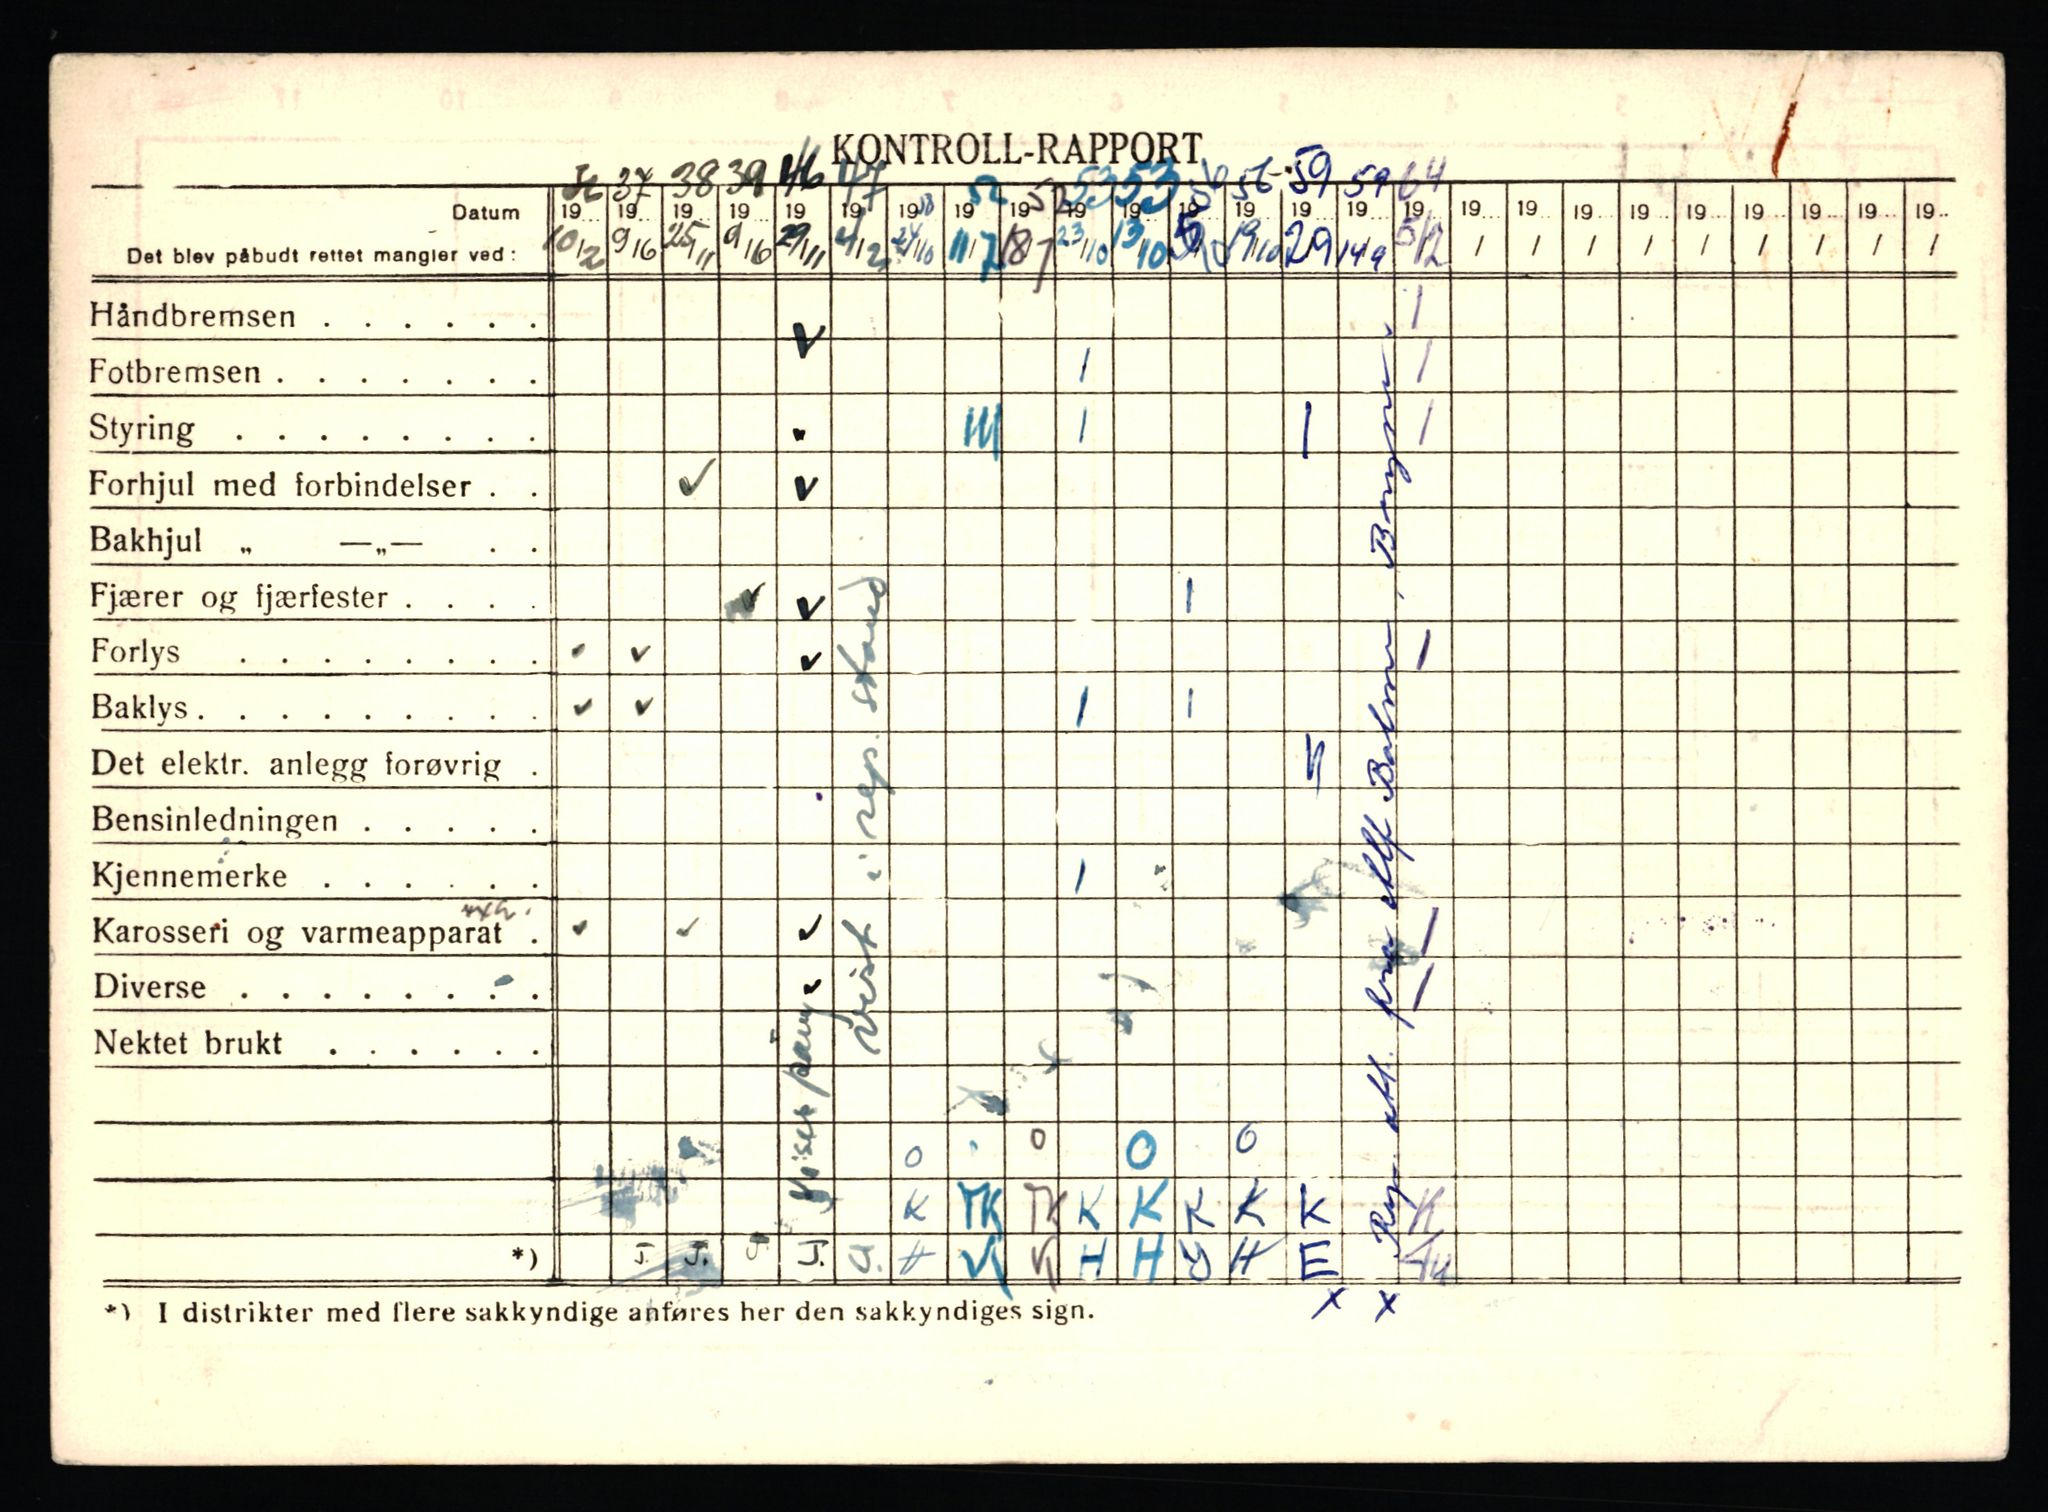 KONTROLL-RAPPORT
37 38 39 46 47 52 52 53 53 56 56 59 59 64
Datum 19 19 19 19 19 19 19 19 19 19 19 19 19 19 19 19 19 19 19 19 19 19 19 19 19
Det blev påbudt rettet mangler ved: 10/2 9/6 25/11 9/6 29/11 4/2 24/10 11/7 18/7 23/10 13/10 19/10 29 14/9 5/12 / / / / / / / / /
Håndbremsen . . . . . . ✓ |
Fotbremsen . . . . . . . | |
Styring . . . . . . . . | | |
Forhjul med forbindelser . . ✓ ✓
Bakhjul „ —„— . .
Fjærer og fjærfester . . . . ✓ ✓ |
Forlys . . . . . . . . ✓ ✓ |
Baklys . . . . . . . . . ✓ ✓ | |
Det elektr. anlegg forøvrig .
Bensinledningen . . . . .
Kjennemerke . . . . . . |
Karosseri og varmeapparat . ✓ ✓ |
Diverse . . . . . . . . |
Nektet brukt . . . . . .
vist i rep. stand
fra Alf , Bergen
O O O O
K TK TK K K K K K K
*) J. J. J. J. J. H H H H E
*) I distrikter med flere sakkyndige anføres her den sakkyndiges sign. x x